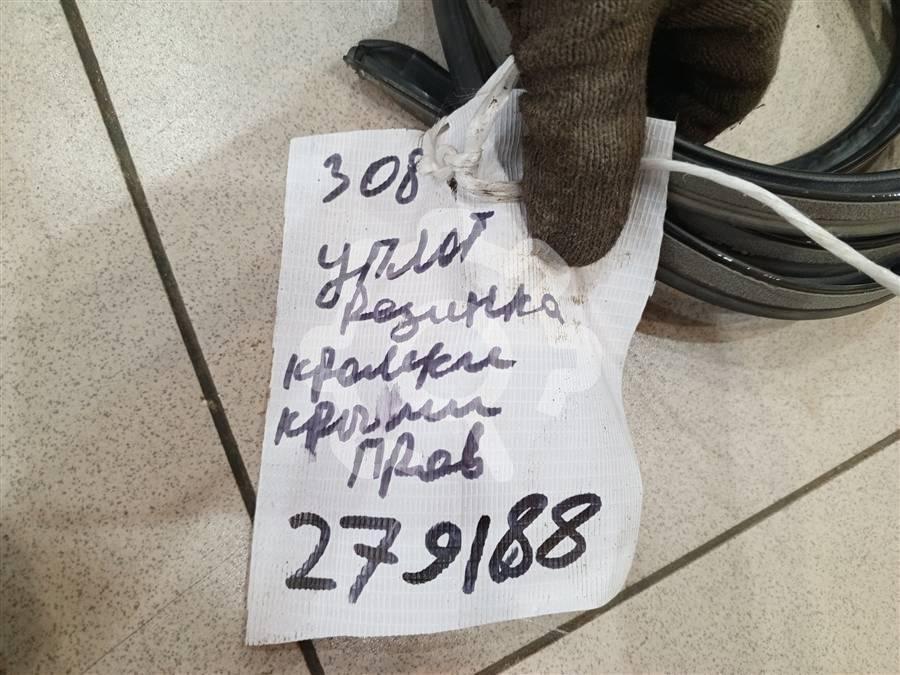 308
уплот
резинка
кромки
крыши
прав
279188